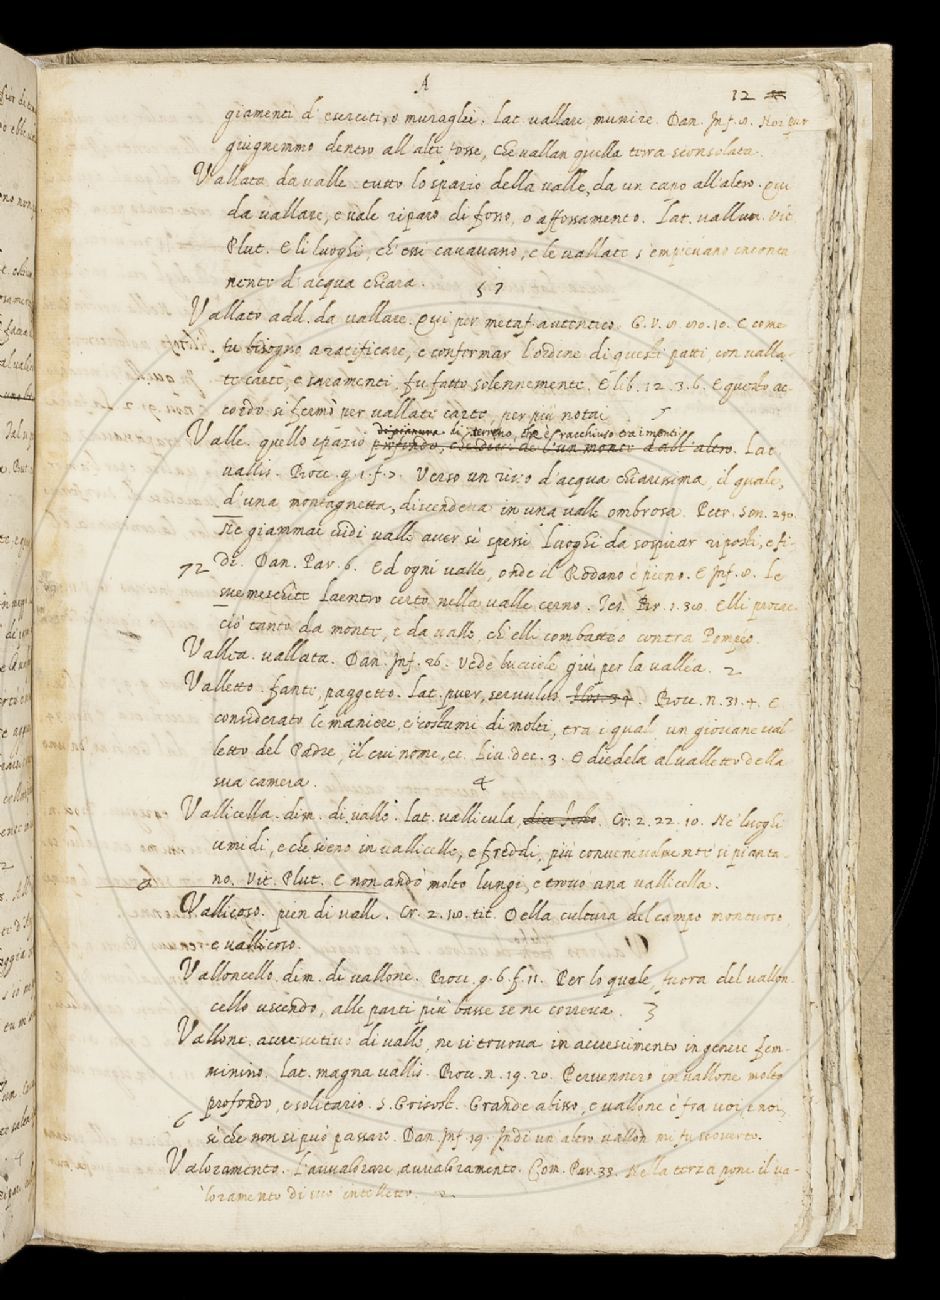 A
12
giamenti d'eserciti, o muraglie. Lat. vallare, munire. Dan. Inf. 8. Noi pur
giugnemmo dentro all'alte fosse, che vallan quella terra sconsolata.
Vallata da valle. tutto lo spazio della valle, da un capo all'altro. Qui
da vallare, e vale riparo di fosso, o affossamento. Lat. vallum. Vit.
Plut. E li luoghi, ch'essi cavavano, e le vallate s'empievano incontanente
nente d'acqua chiara.
Vallato add. da vallare. Qui per metaf. autentico. G. V. 8. 10. E come
fu bisogno a ratificare, e confermar l'ordine di questi patti, con valla-
te carte, e saramenti, fu fatto solennemente. E lib. 12. 3. 6. E questo ac-
cordo si fermò per vallate carte, per più notai
di pianura di terreno, che è racchiuso tra i monti
Valle. quello spazio profondo, che dal l'un monte all'altro. Lat.
vallis. Bocc. g. 1. f. Verso un rivo d'acqua chiarissima, il quale,
d'una montagnetta, discendeva in una valle ombrosa. Petr. Son. 240.
Ne giammai vidi valle aver sì spessi Luoghi da sospirar riposti, e fi-
72 di. Dan. Par. 6. Ed ogni valle, onde il Rodano è pieno. E Inf. 8. Le
sue meschite Laentro certo nella valle cerno. Elli procac-
ciò tanto da monte, e da valle, ch'elli combatteo contra Pompeo.
Vallea. vallata. Dan. Inf. 26. Vede lucciole giù per la vallea. 2
Valletto. fante, paggetto. Lat. puer, servulus. Bocc. n. 31. 4. E
considerato le maniere, e' costumi di molti, tra i qual, un giovane val-
letto del Padre, il cui nome, ec. Liv. dec. 3. E diedela al valletto della
sua camera. 4
Vallicella. dim. di valle. Lat. vallicula. Cr. 2. 22. 10. Ne' luoghi
umidi, e che sieno in vallicelle, e freddi, più convenevolmente si pianta-
no. Vit. Plut. E non andò molto lungi, e trovò una vallicella.
Vallicoso. pien di valli. Cr. 2. tit. Della cultura del campo montuoso
e vallicoso.
Valloncello. dim. di vallone. Bocc. g. 6. f. 11. Per lo quale, fuora del vallon-
cello uscendo, alle parti più basse se ne correva. 3
Vallone. accrescitivo di valle, ne si truova in accrescimento in genere fem-
minino. Lat. magna vallis. Bocc. n. 19. 20. Pervennero in vallone molto
profondo, e solitario. S. Grisost. Grande abisso, e vallone è fra voi, e noi,
6 sì che non si può passare. Dan. Inf. 19. Indi un altro vallon mi fu scoverto.
Valoramento. L'avvalorare, avvaloramento. Com. Par. 33. Nella terza pone il va-
loramento di suo intelletto. 2